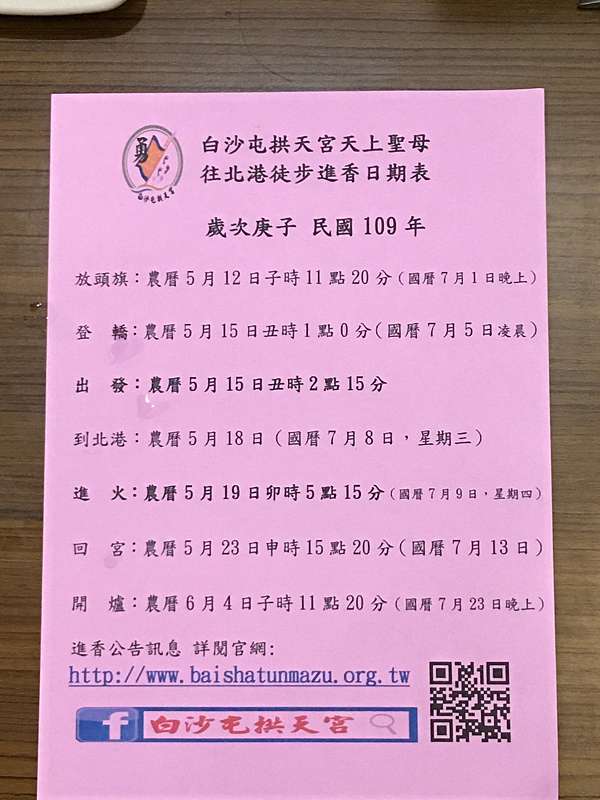 勇
白沙屯拱天宮
白沙屯拱天宮天上聖母
往北港徒步進香日期表
歲次庚子 民國 109 年
放頭旗：農曆 5 月 12 日子時 11 點 20 分（國曆 7 月 1 日晚上）
登 轎：農曆 5 月 15 日丑時 1 點 0 分（國曆 7 月 5 日凌晨）
出 發：農曆 5 月 15 日丑時 2 點 15 分
到北港：農曆 5 月 18 日（國曆 7 月 8 日，星期三）
進 火：農曆 5 月 19 日卯時 5 點 15 分（國曆 7 月 9 日，星期四）
回 宮：農曆 5 月 23 日申時 15 點 20 分（國曆 7 月 13 日）
開 爐：農曆 6 月 4 日子時 11 點 20 分（國曆 7 月 23 日晚上）
進香公告訊息 詳閱官網：
http://www.baishatunmazu.org.tw
f 白沙屯拱天宮